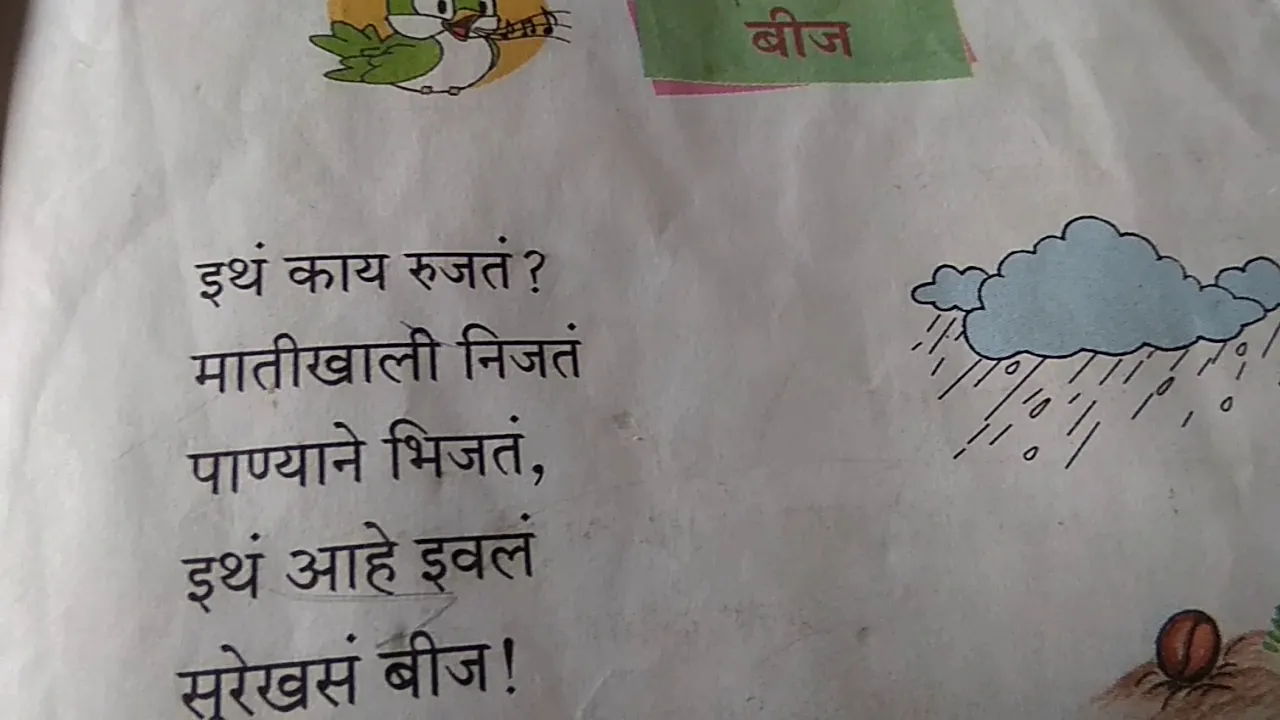 बीज
इथं काय रुजतं?
मातीखाली निजतं
पाण्याने भिजतं,
इथं आहे इवलं
सुरेखसं बीज!